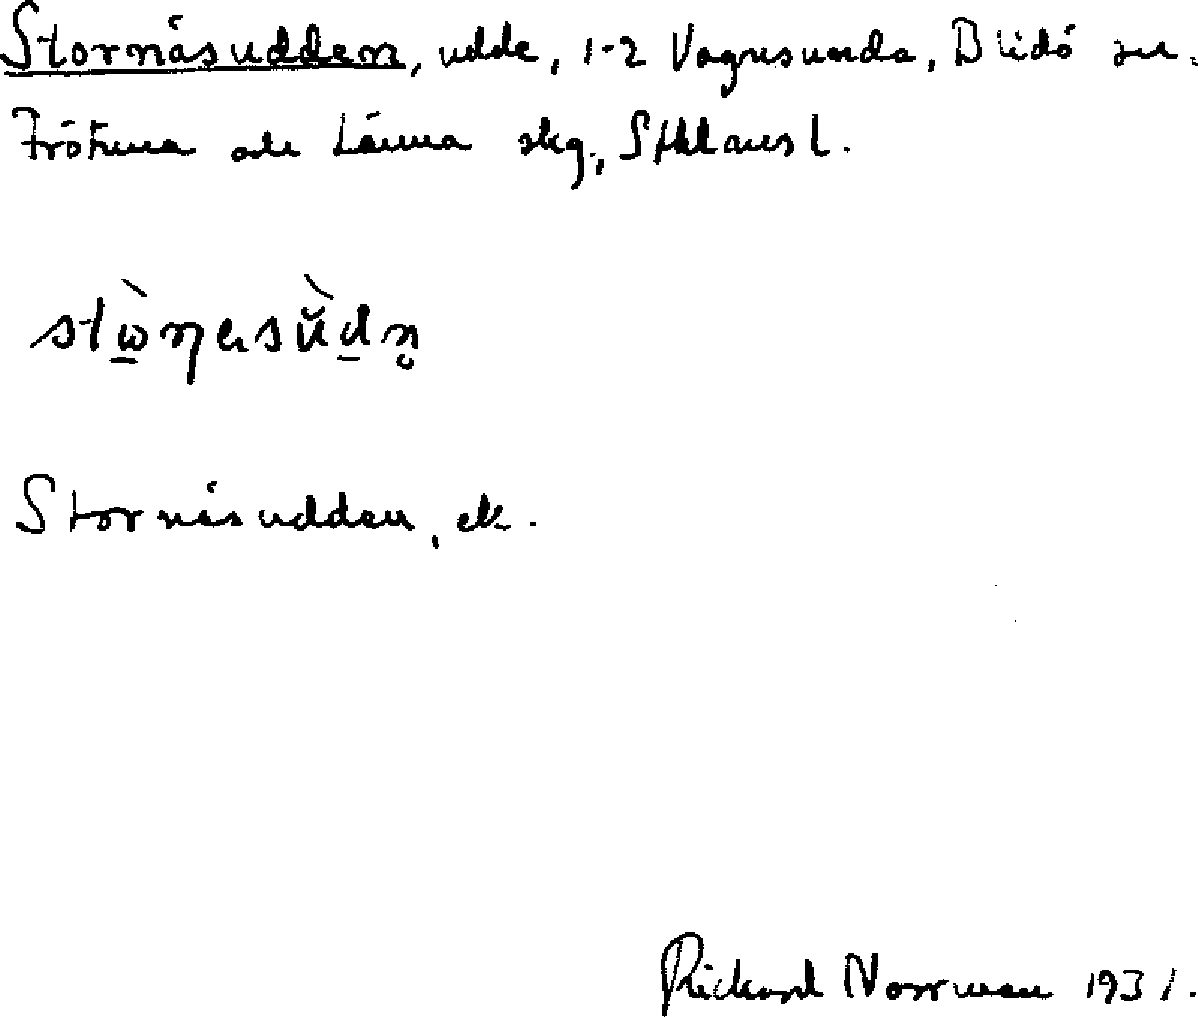 Stornäsudden, udde, 1-2 Vagnsunda, Blidö sn.
Frötuna och Länna skg, Sthlms l.
Stornäsudden, ek.
Rickard Norrman 1931.